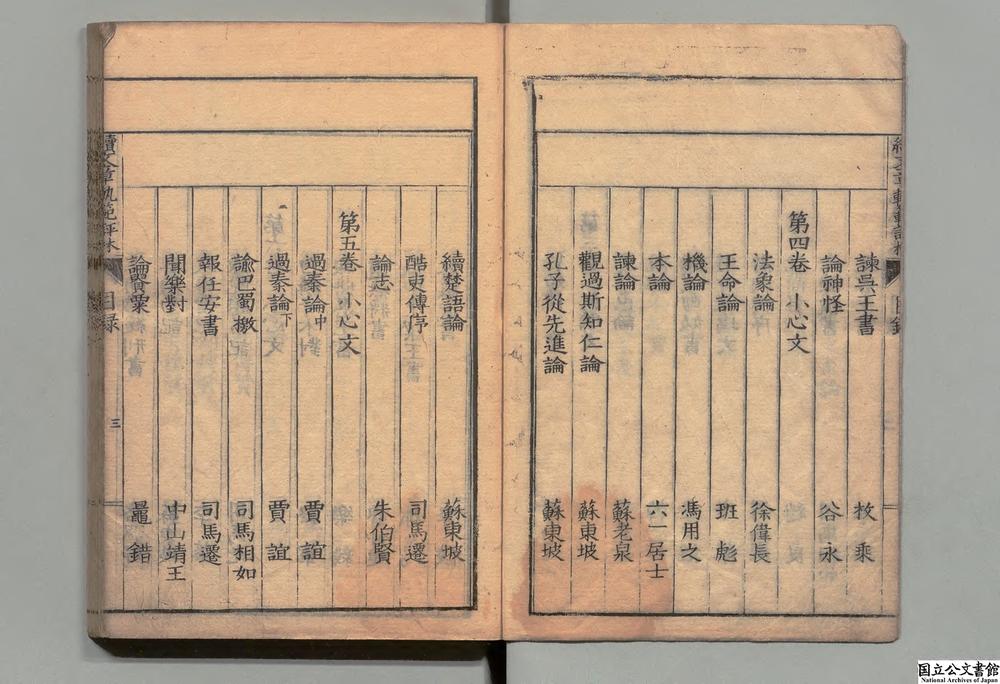 諫吳王書　枚乘
論神怪　谷永
第四卷　小心文
法象論　徐偉長
王命論　班彪
機論　馮用之
本論　六一居士
諫論　蘇老泉
觀過斯知仁論　蘇東坡
孔子從先進論　蘇東坡
續楚語論　蘇東坡
酷吏傳序　司馬遷
論志　朱伯賢
第五卷　小心文
過秦論中　賈誼
過秦論下　賈誼
諭巴蜀檄　司馬相如
報任安書　司馬遷
聞樂對　中山靖王
論貴粟　鼂錯
續文章軌範評林　目録　三
国立公文書館
National Archives of Japan